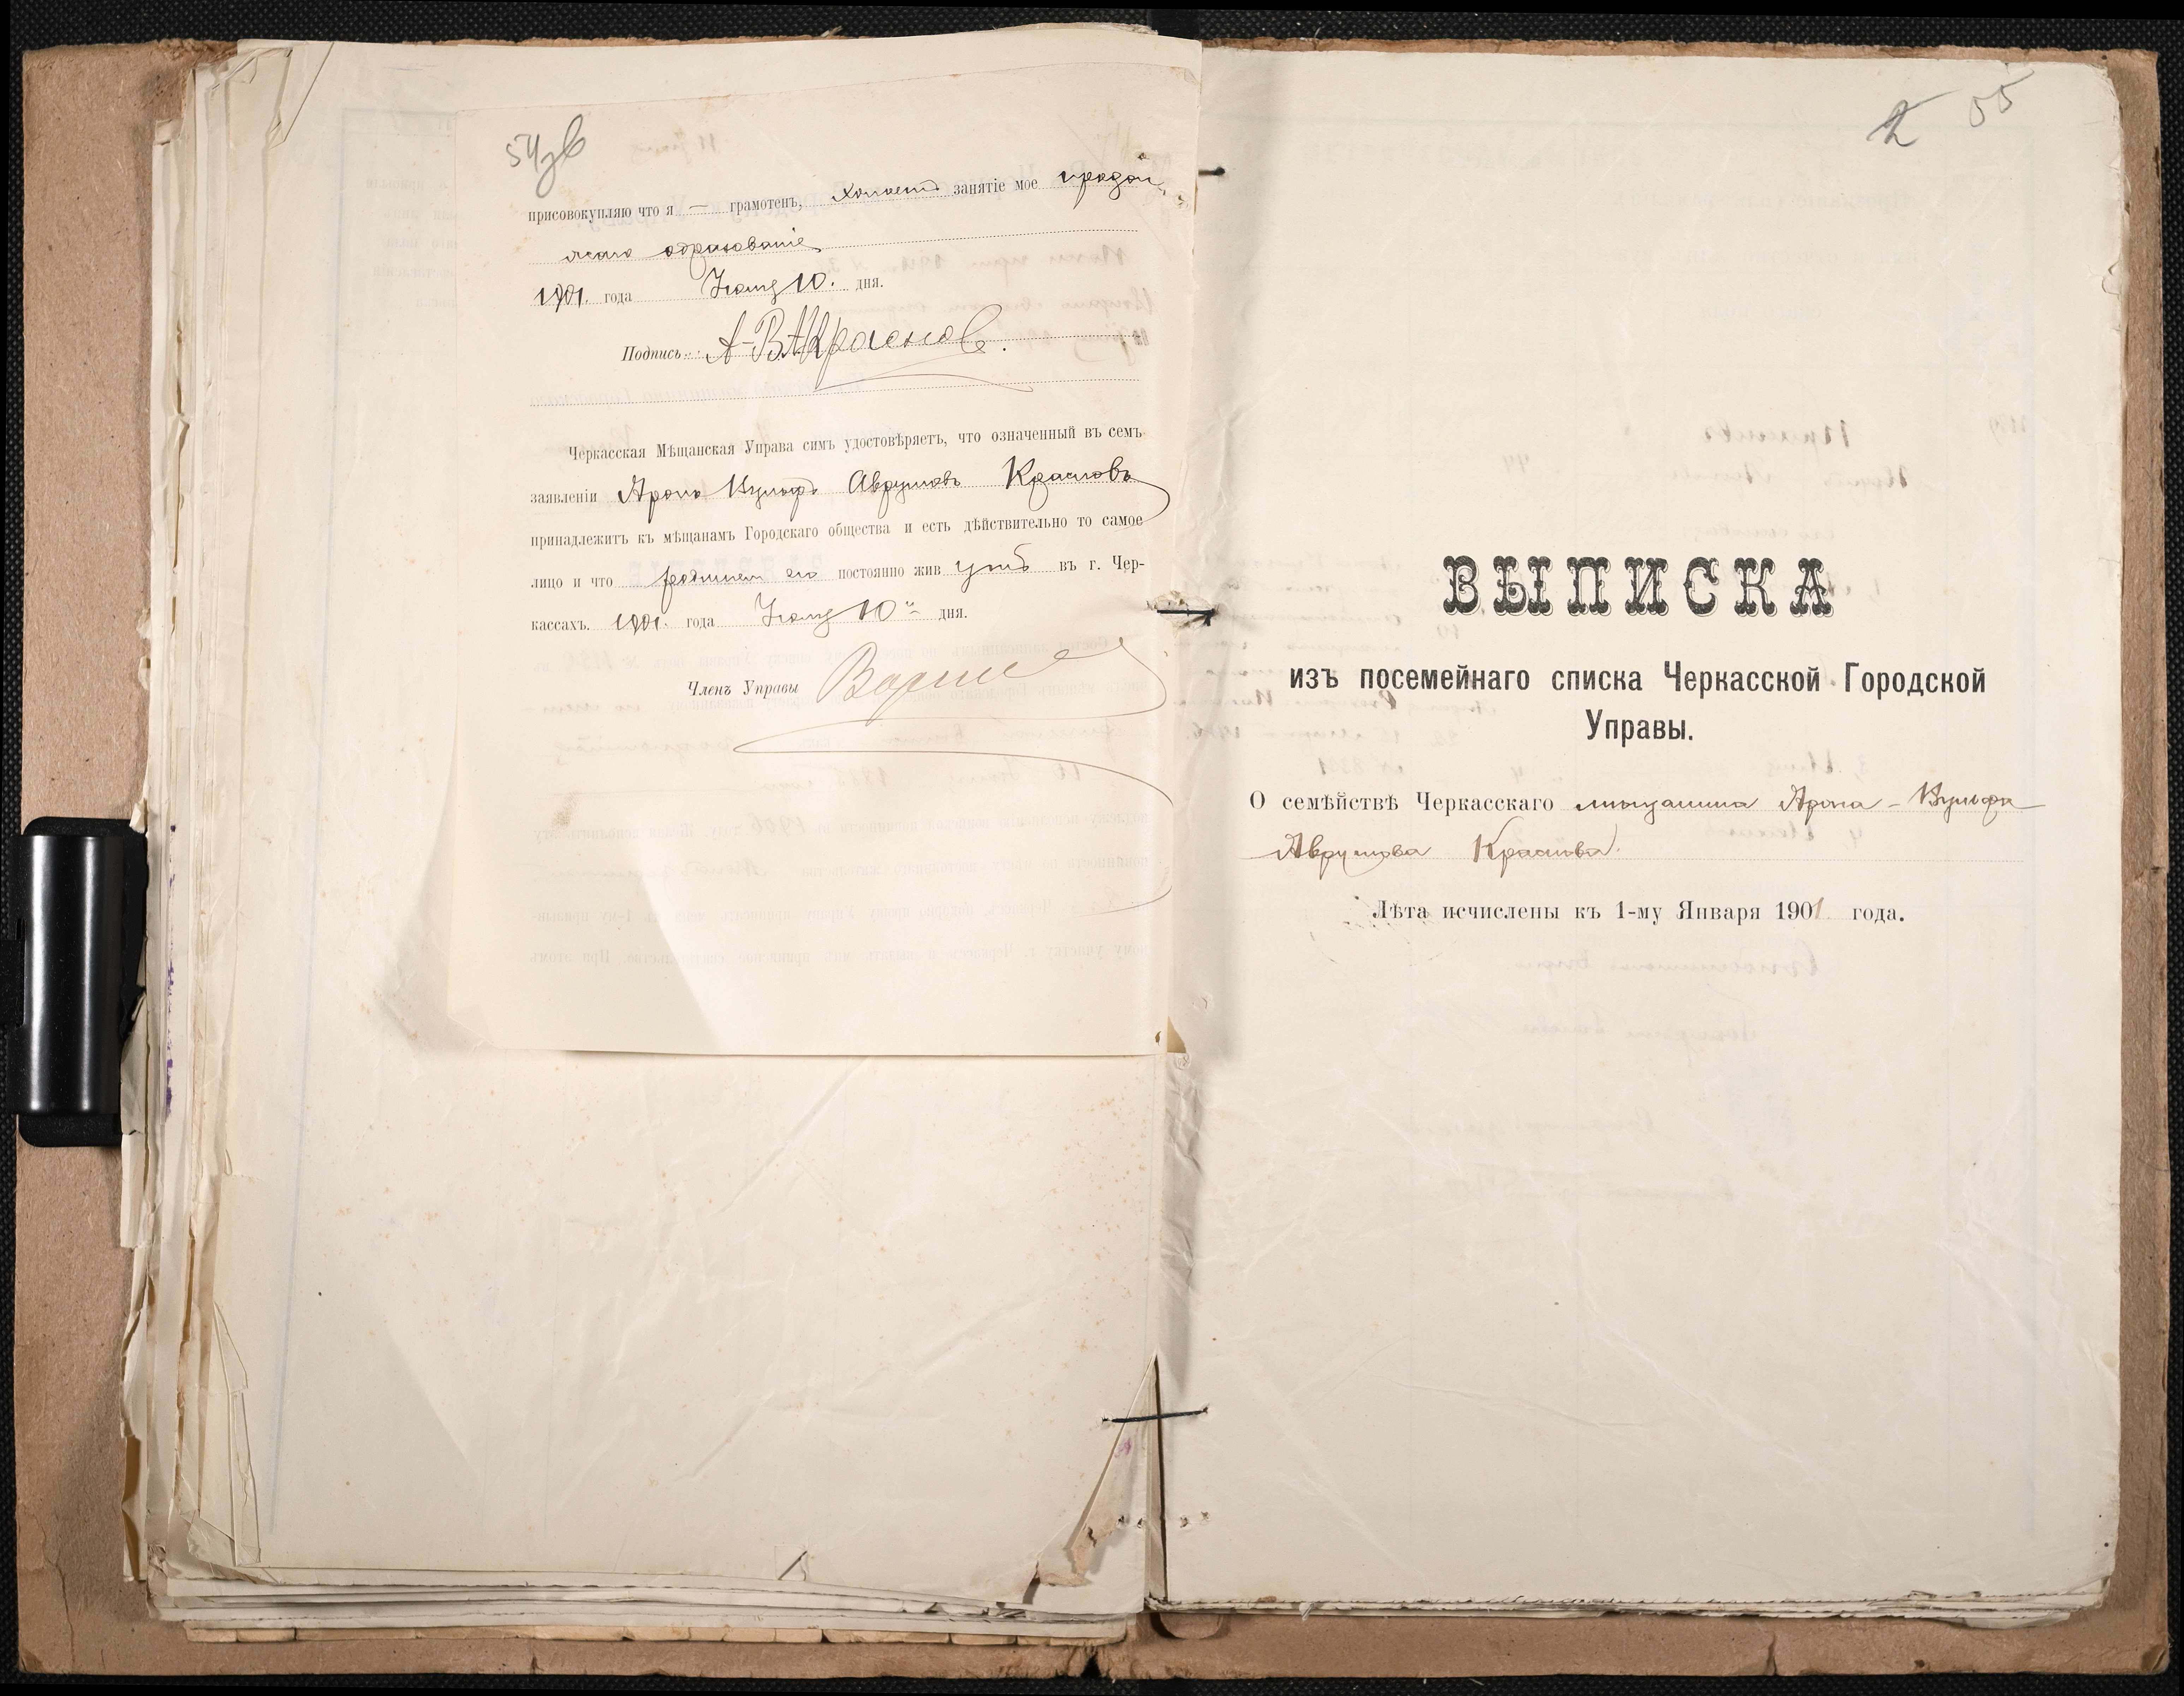 54зв
присовокупляю что я — грамотенъ, холостъ занятіе мое продол
жаю образованіе
1901. года Іюля 10. дня.
Подпись: А-В.А.Красновъ.
Черкасская Мѣщанская Управа симъ удостовѣряетъ, что означенный въ семъ
заявленіи Аронъ Вульфъ Аврумовъ Красновъ
принадлежитъ къ мѣщанамъ Городскаго общества и есть дѣйствительно то самое
лицо и что его постоянно жив утъ въ г. Чер-
кассахъ. 1901. года Іюля 10 дня.
Членъ Управы
2 55
ВЫПИСКА
изъ посемейнаго списка Черкасской Городской
Управы.
О семѣйствѣ Черкасскаго мѣщанина Арона-Вульфа
Аврумова Краснова.
Лѣта исчислены къ 1-му Января 1901 года.